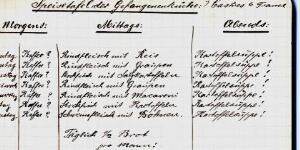 Speisetafel der Gefangenenküche:
Morgens: Mittags: Abends:
Kaffe? Rindfleisch mit Reis Kartoffelsuppe!
Kaffe? Rindfleisch mit Graupen Kartoffelsuppe!
Kaffe? mit Salzkartoffeln Kartoffelsuppe!
Kaffe? Rindfleisch mit Graupen Kartoffelsuppe!
Kaffe? Rindfleisch mit Macaroni Kartoffelsuppe!
Kaffe? mit Kartoffeln Kartoffelsuppe!
Kaffe? mit Bohnen Kartoffelsuppe!
Täglich ½ Brot
pro Mann!